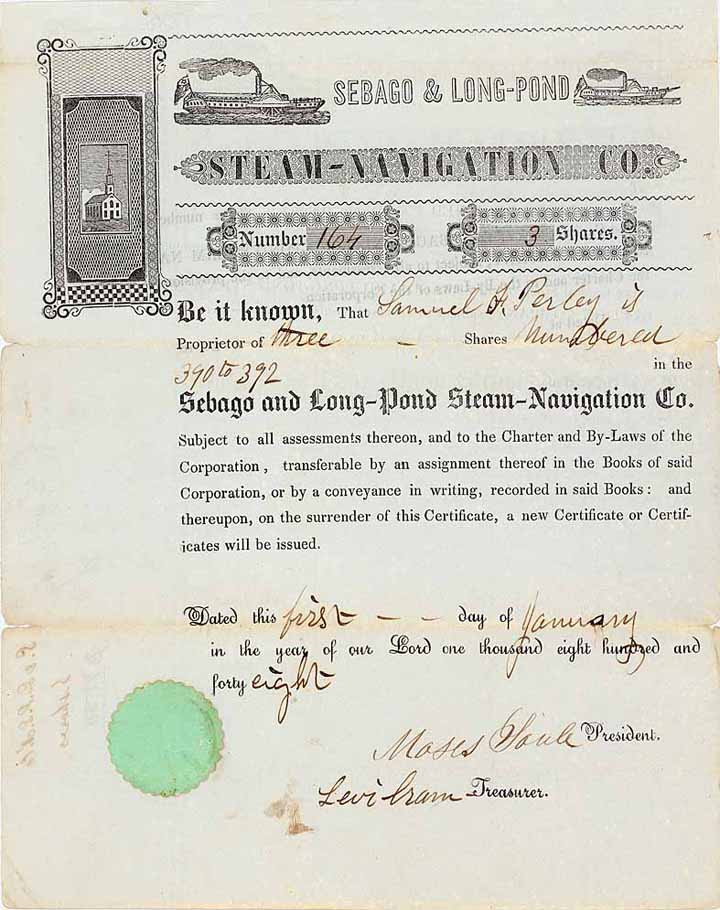 SEBAGO & LONG-POND
STEAM-NAVIGATION CO.
Number 164 3 Shares.
Be it known, That Samuel F. Perley is
Proprietor of three - Shares Numbered
390 to 392 in the
Sebago and Long-Pond Steam-Navigation Co.
Subject to all assessments thereon, and to the Charter and By-Laws of the
Corporation, transferable by an assignment thereof in the Books of said
Corporation, or by a conveyance in writing, recorded in said Books: and
thereupon, on the surrender of this Certificate, a new Certificate or Certif-
icates will be issued.
Dated this first - - day of January
in the year of our Lord one thousand eight hundred and
forty eight
Moses Soule President.
Levi Cram Treasurer.